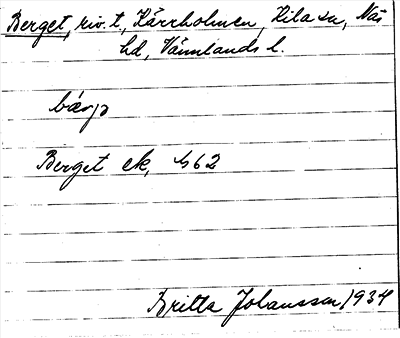 Berget, riv. t., Kärrholmen, Kila sn, Näs
hd, Värmlands l.
bærjı
Berget ek, 462
Britta Johansson 1934